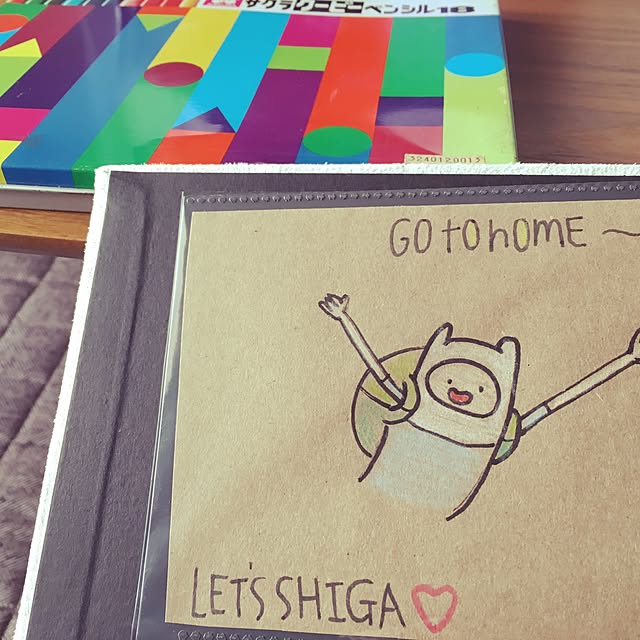 サクラクーピーペンシル18
3240120015
GO tO hOME ~
LET'S SHIGA♡